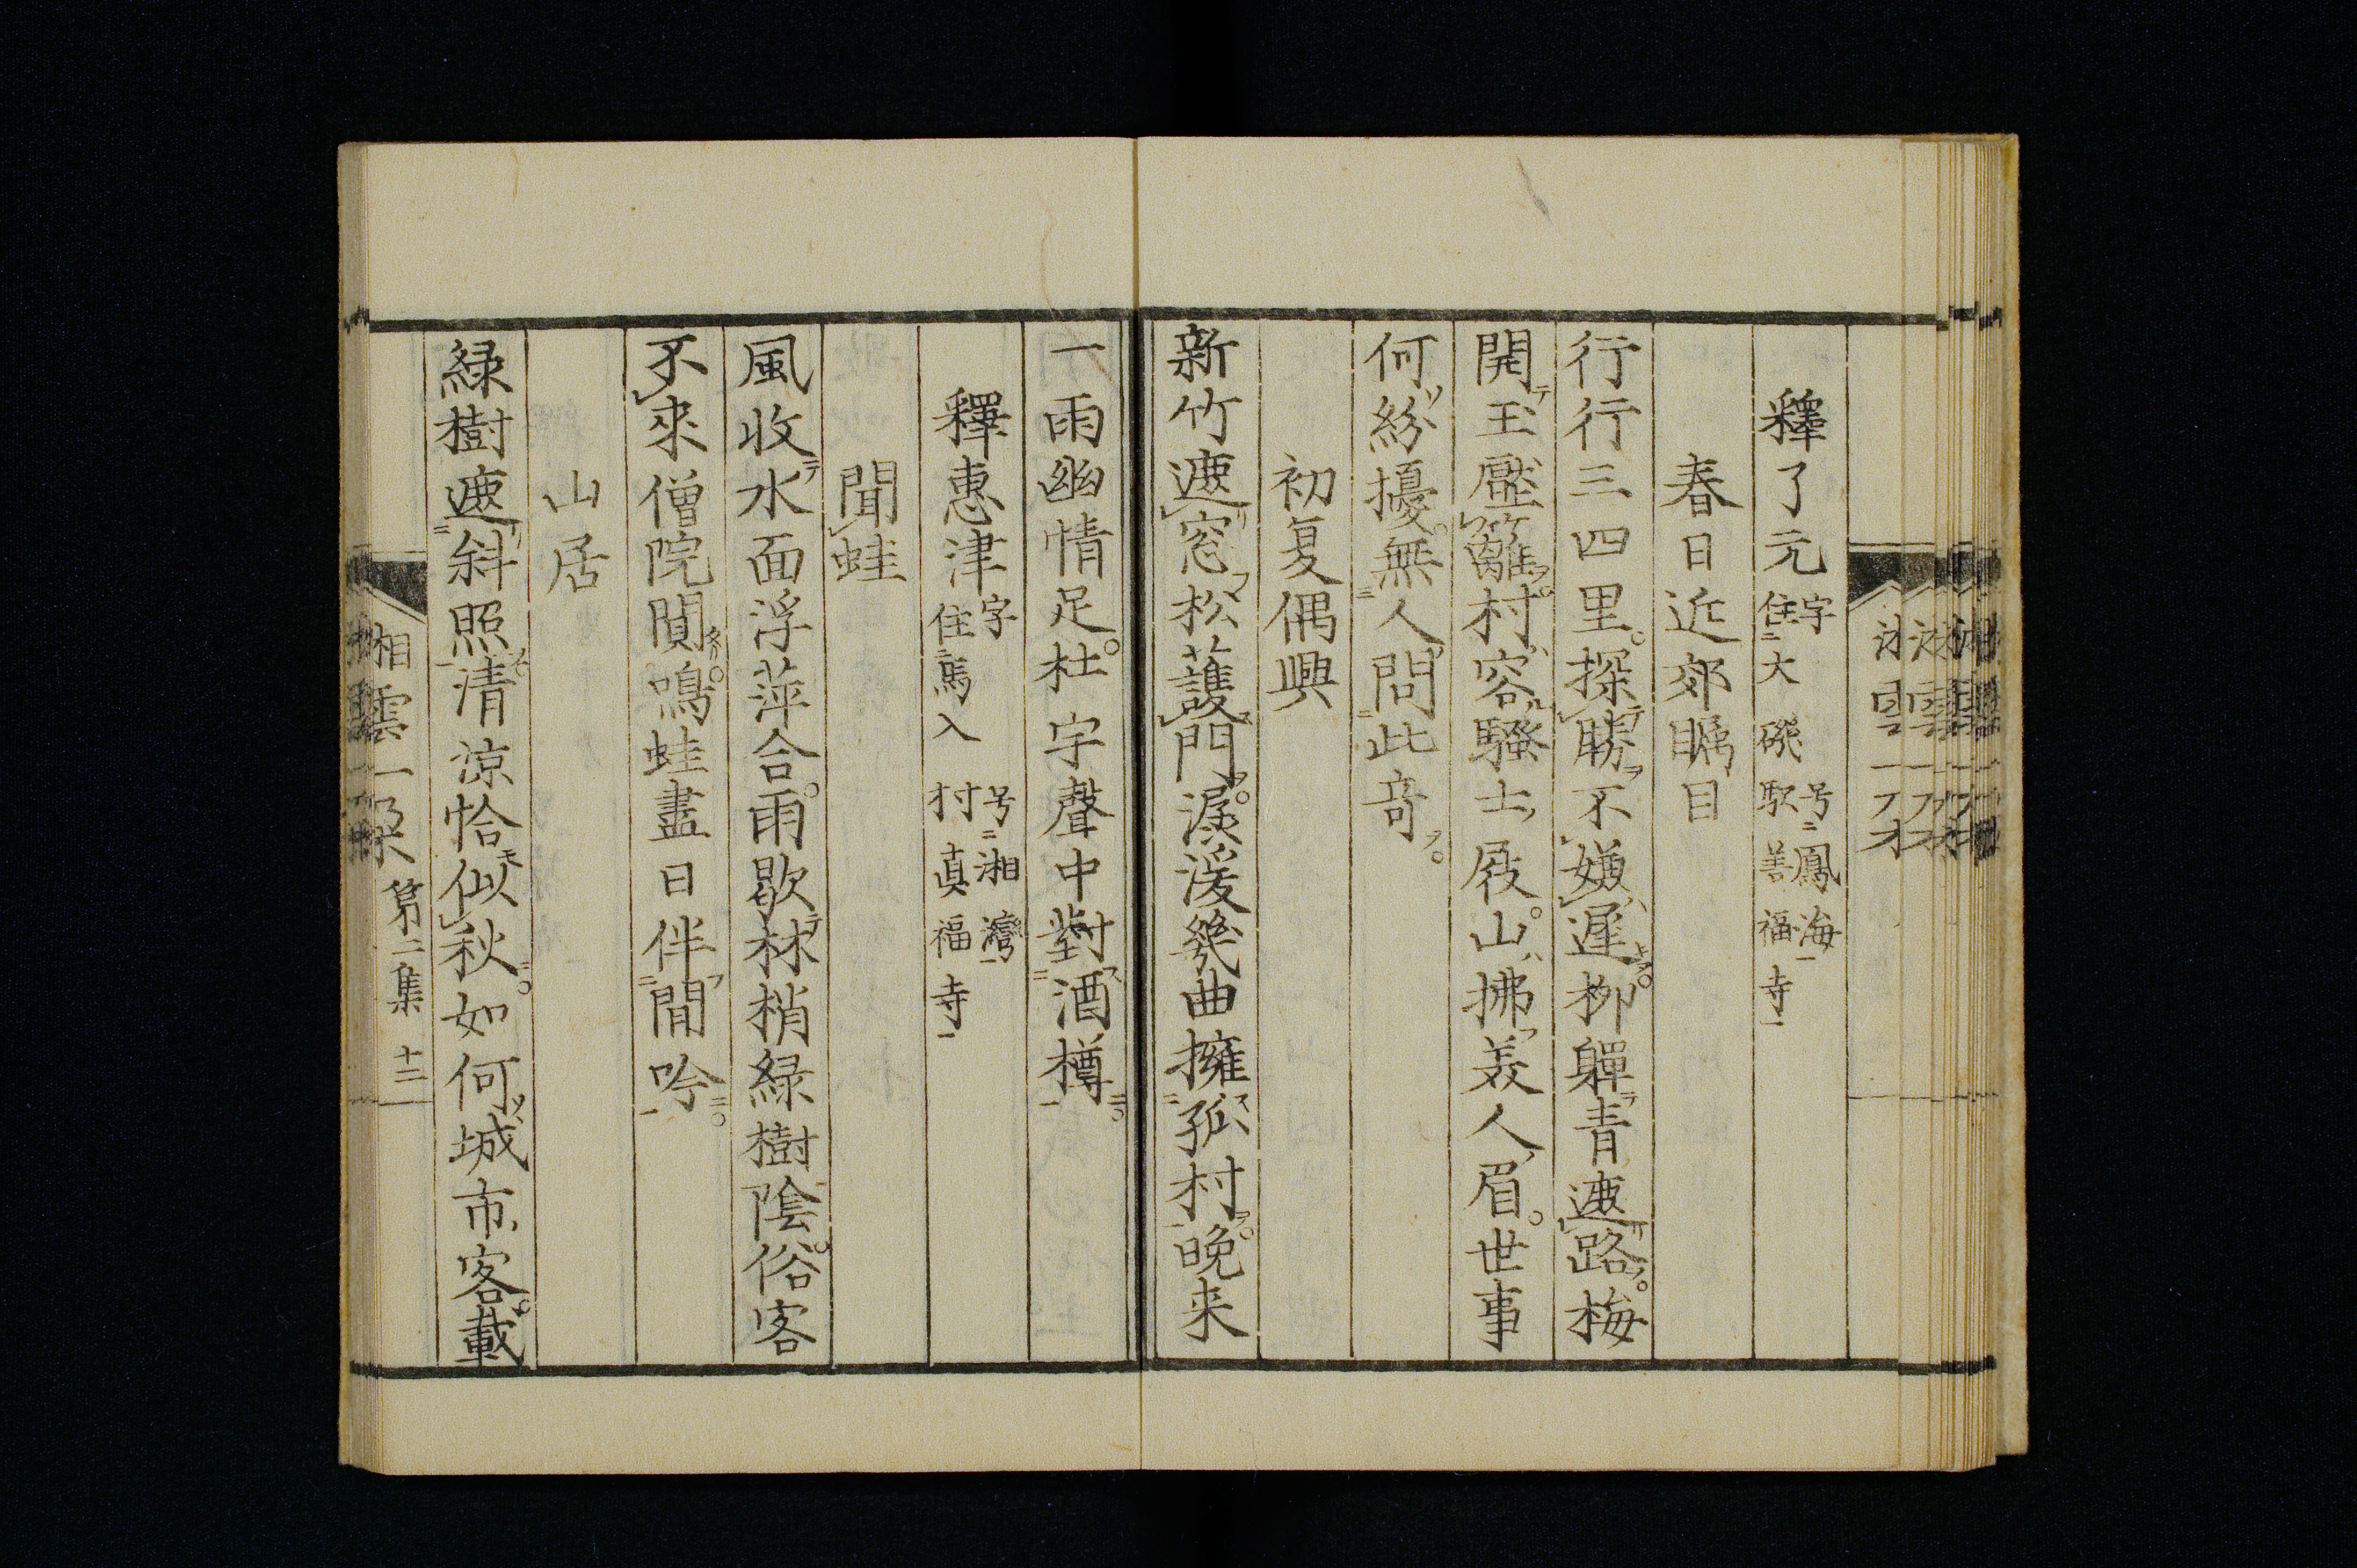 釋了元字号鳳海住大磯駅善福寺
春日近郊矚目
行行三四里。探勝不嫌遲。柳嚲青遮路。梅
開玉壓籬。村容騷士屐。山拂美人眉。世事
何紛擾。無人問此奇。
初夏偶興
新竹遮窓松護門。潺湲幾曲擁孤村。晚来
一雨幽情足。杜宇聲中對酒樽。
釋惠津字号湘灣住馬入村真福寺
聞蛙
風收水面浮萍合。雨歇林梢綠樹陰。俗客
不來僧院閴。鳴蛙盡日伴閒吟。
山居
緑樹遮斜照清涼恰似秋。如何城市客。載
湘雲一朶 第二集 十三